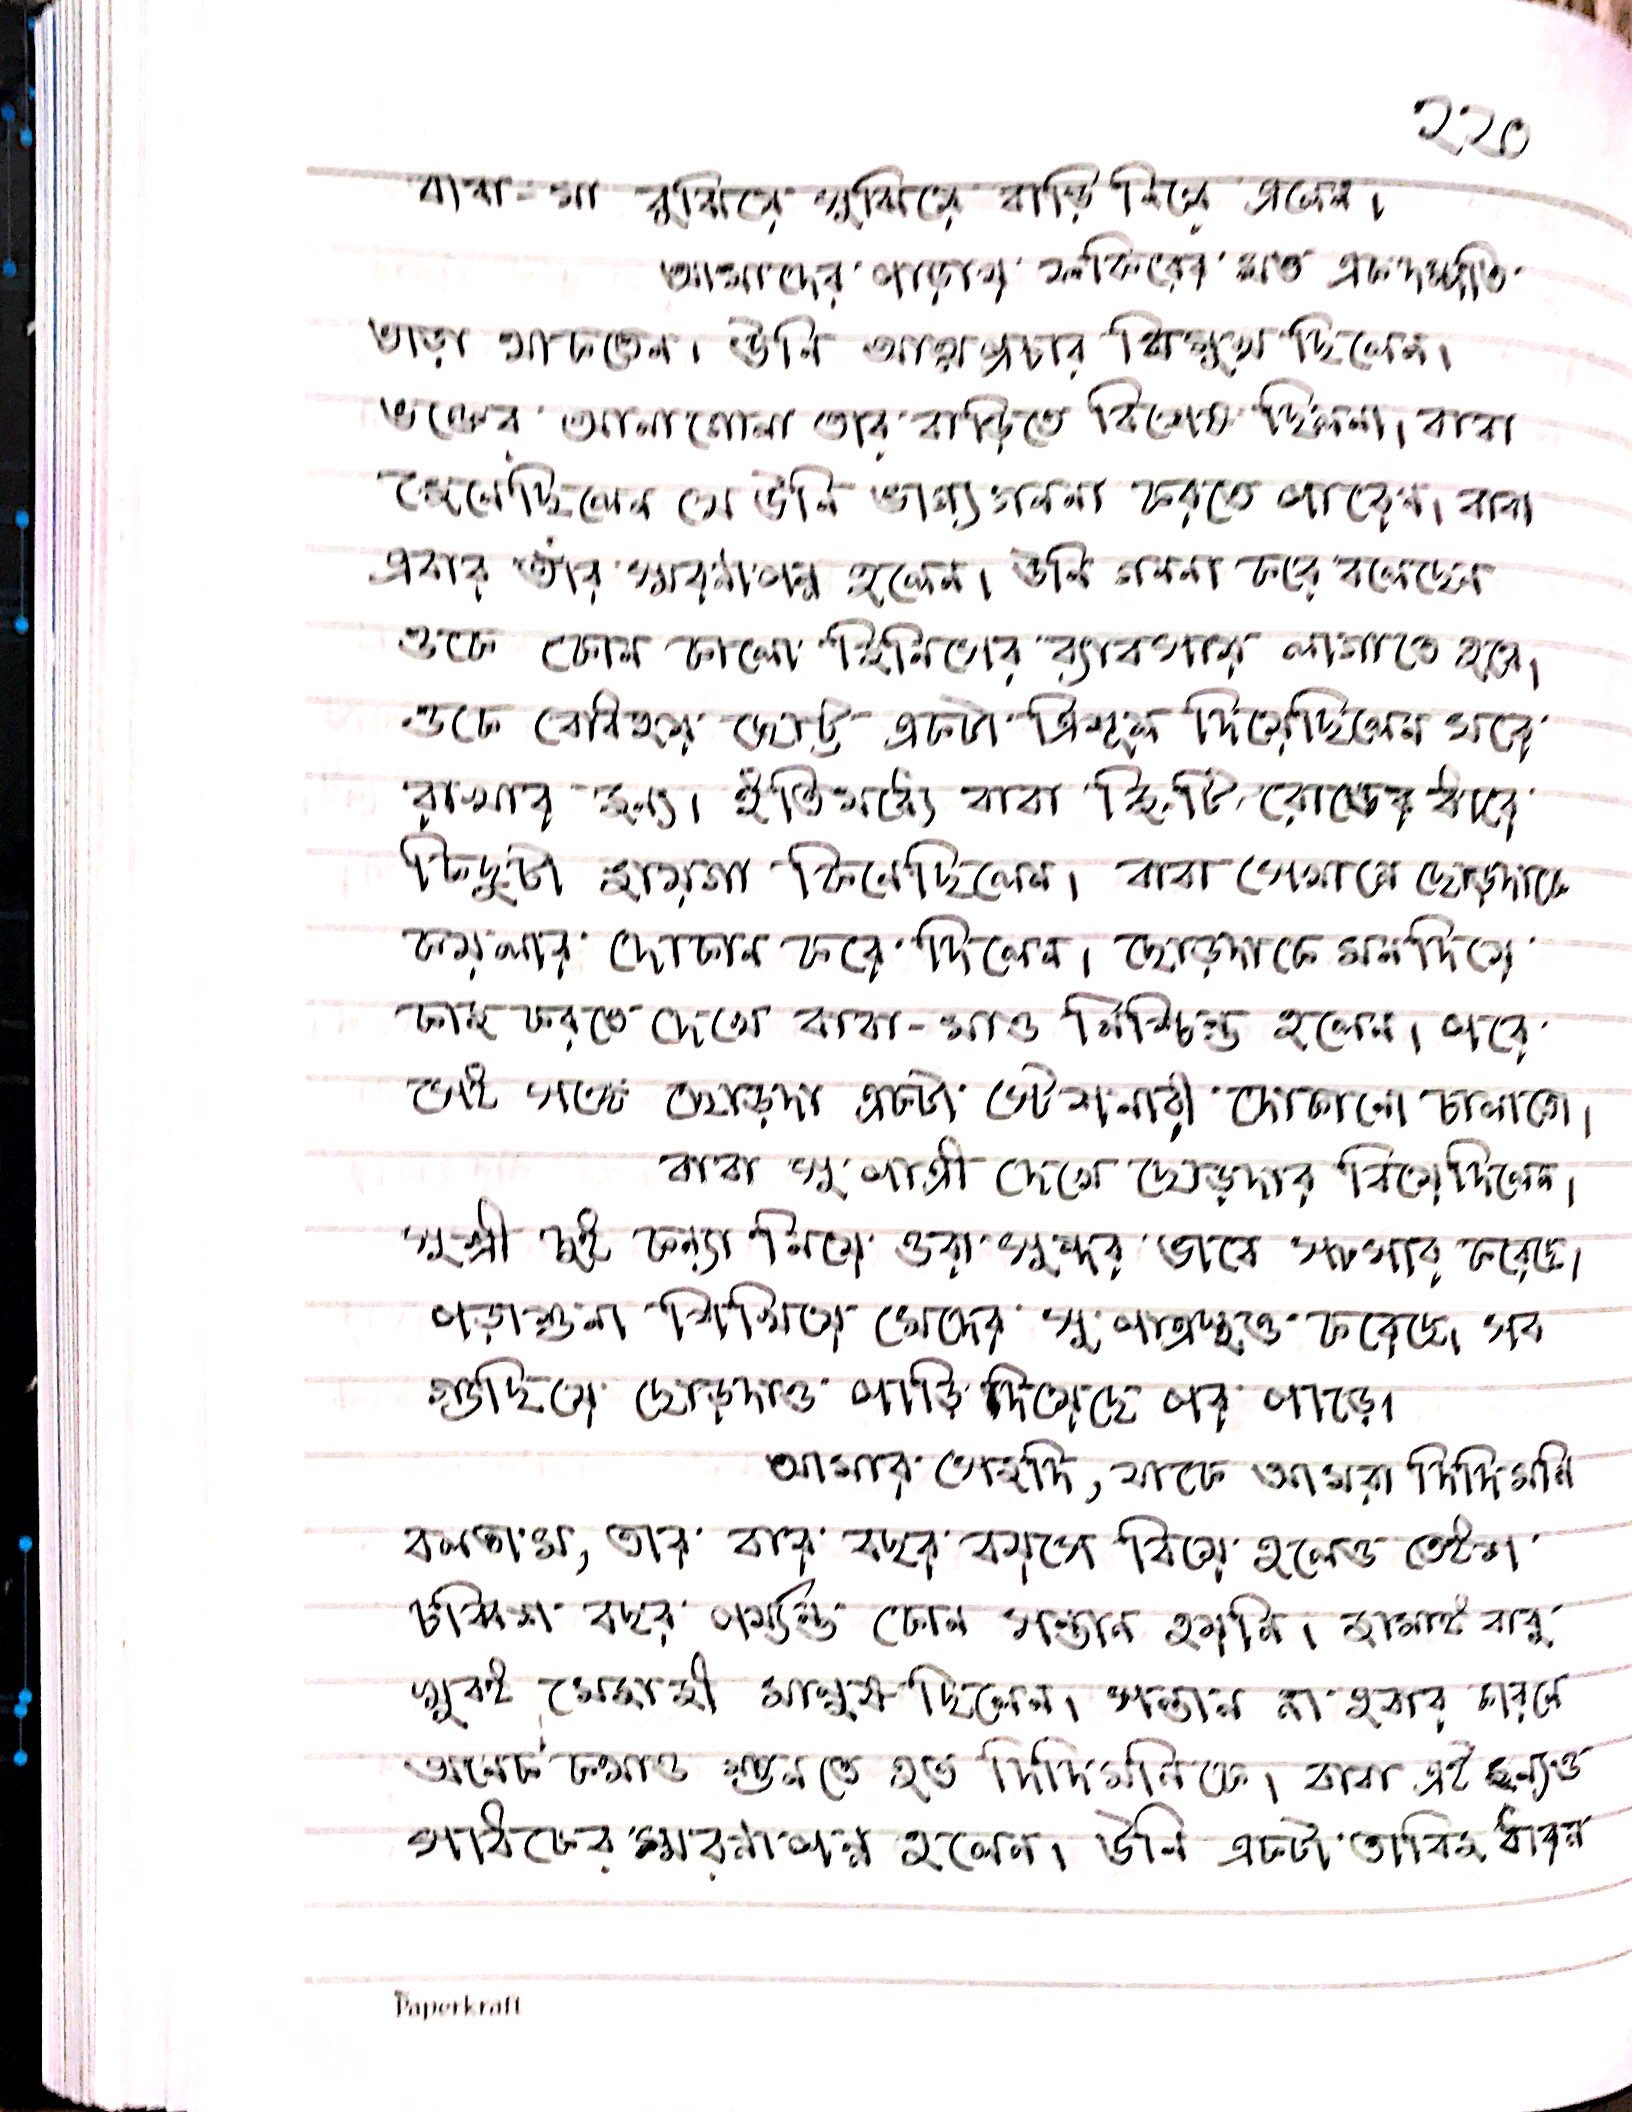 ২২০
বাবা-মা বুঝিয়ে সুঝিয়ে বাড়ি নিয়ে এলেন।
আমাদের পাড়ায় ফকিরের মত এক দম্পতি
ভাড়া থাকতেন। উনি আত্মপ্রচার বিমুখ ছিলেন।
ভক্তের আনাগোনা তার বাড়িতে বিশেষ ছিলনা। বাবা
জেনেছিলেন যে উনি ভাগ্য গননা করতে পারেন। বাবা
এবার তাঁর স্মরনাপন্ন হলেন। উনি গননা করে বলেছেন
ওকে কোন কালো জিনিসের ব্যাবসায় লাগাতে হবে।
ওকে বোধহয় ছোট্ট একটা ত্রিশূল দিয়েছিলেন ঘরে
রাখার জন্য। ইতিমধ্যে বাবা জি.টি. রোডের ধারে
কিছুটা জায়গা কিনেছিলেন। বাবা সেখানে ছোড়দাকে
কয়লার দোকান করে দিলেন। ছোড়দাকে মনদিয়ে
কাজ করতে দেখে বাবা-মাও নিশ্চিন্ত হলেন। পরে
তাই সঙ্গে ছোড়দা একটা স্টেশনারী দোকানো চালাতো।
বাবা সু পাত্রী দেখে ছোড়দার বিয়ে দিলেন।
সুশ্রী দুই কন্যা নিয়ে ওরা সুন্দর ভাবে সংসার করেছে।
পড়াশুনা শিখিয়ে মেয়েদের সু পাত্রস্থও করেছে। সব
গুছিয়ে ছোড়দাও পাড়ি দিয়েছে পর পাড়ে।
আমার সেজদি, যাকে আমরা দিদিমনি
বলতাম, তার বার বছর বয়সে বিয়ে হলেও তেইশ
চব্বিশ বছর পর্য্যন্ত কোন সন্তান হয়নি। জামাই বাবু
খুবই মেজাজী মানুষ ছিলেন। সন্তান না হবার কারনে
অনেক কথাও শুনতে হত দিদিমনিকে। বাবা এই জন্যও
সাধকের স্মরনাপন্ন হলেন। উনি একটা তাবিজ ধারন
Paperkraft